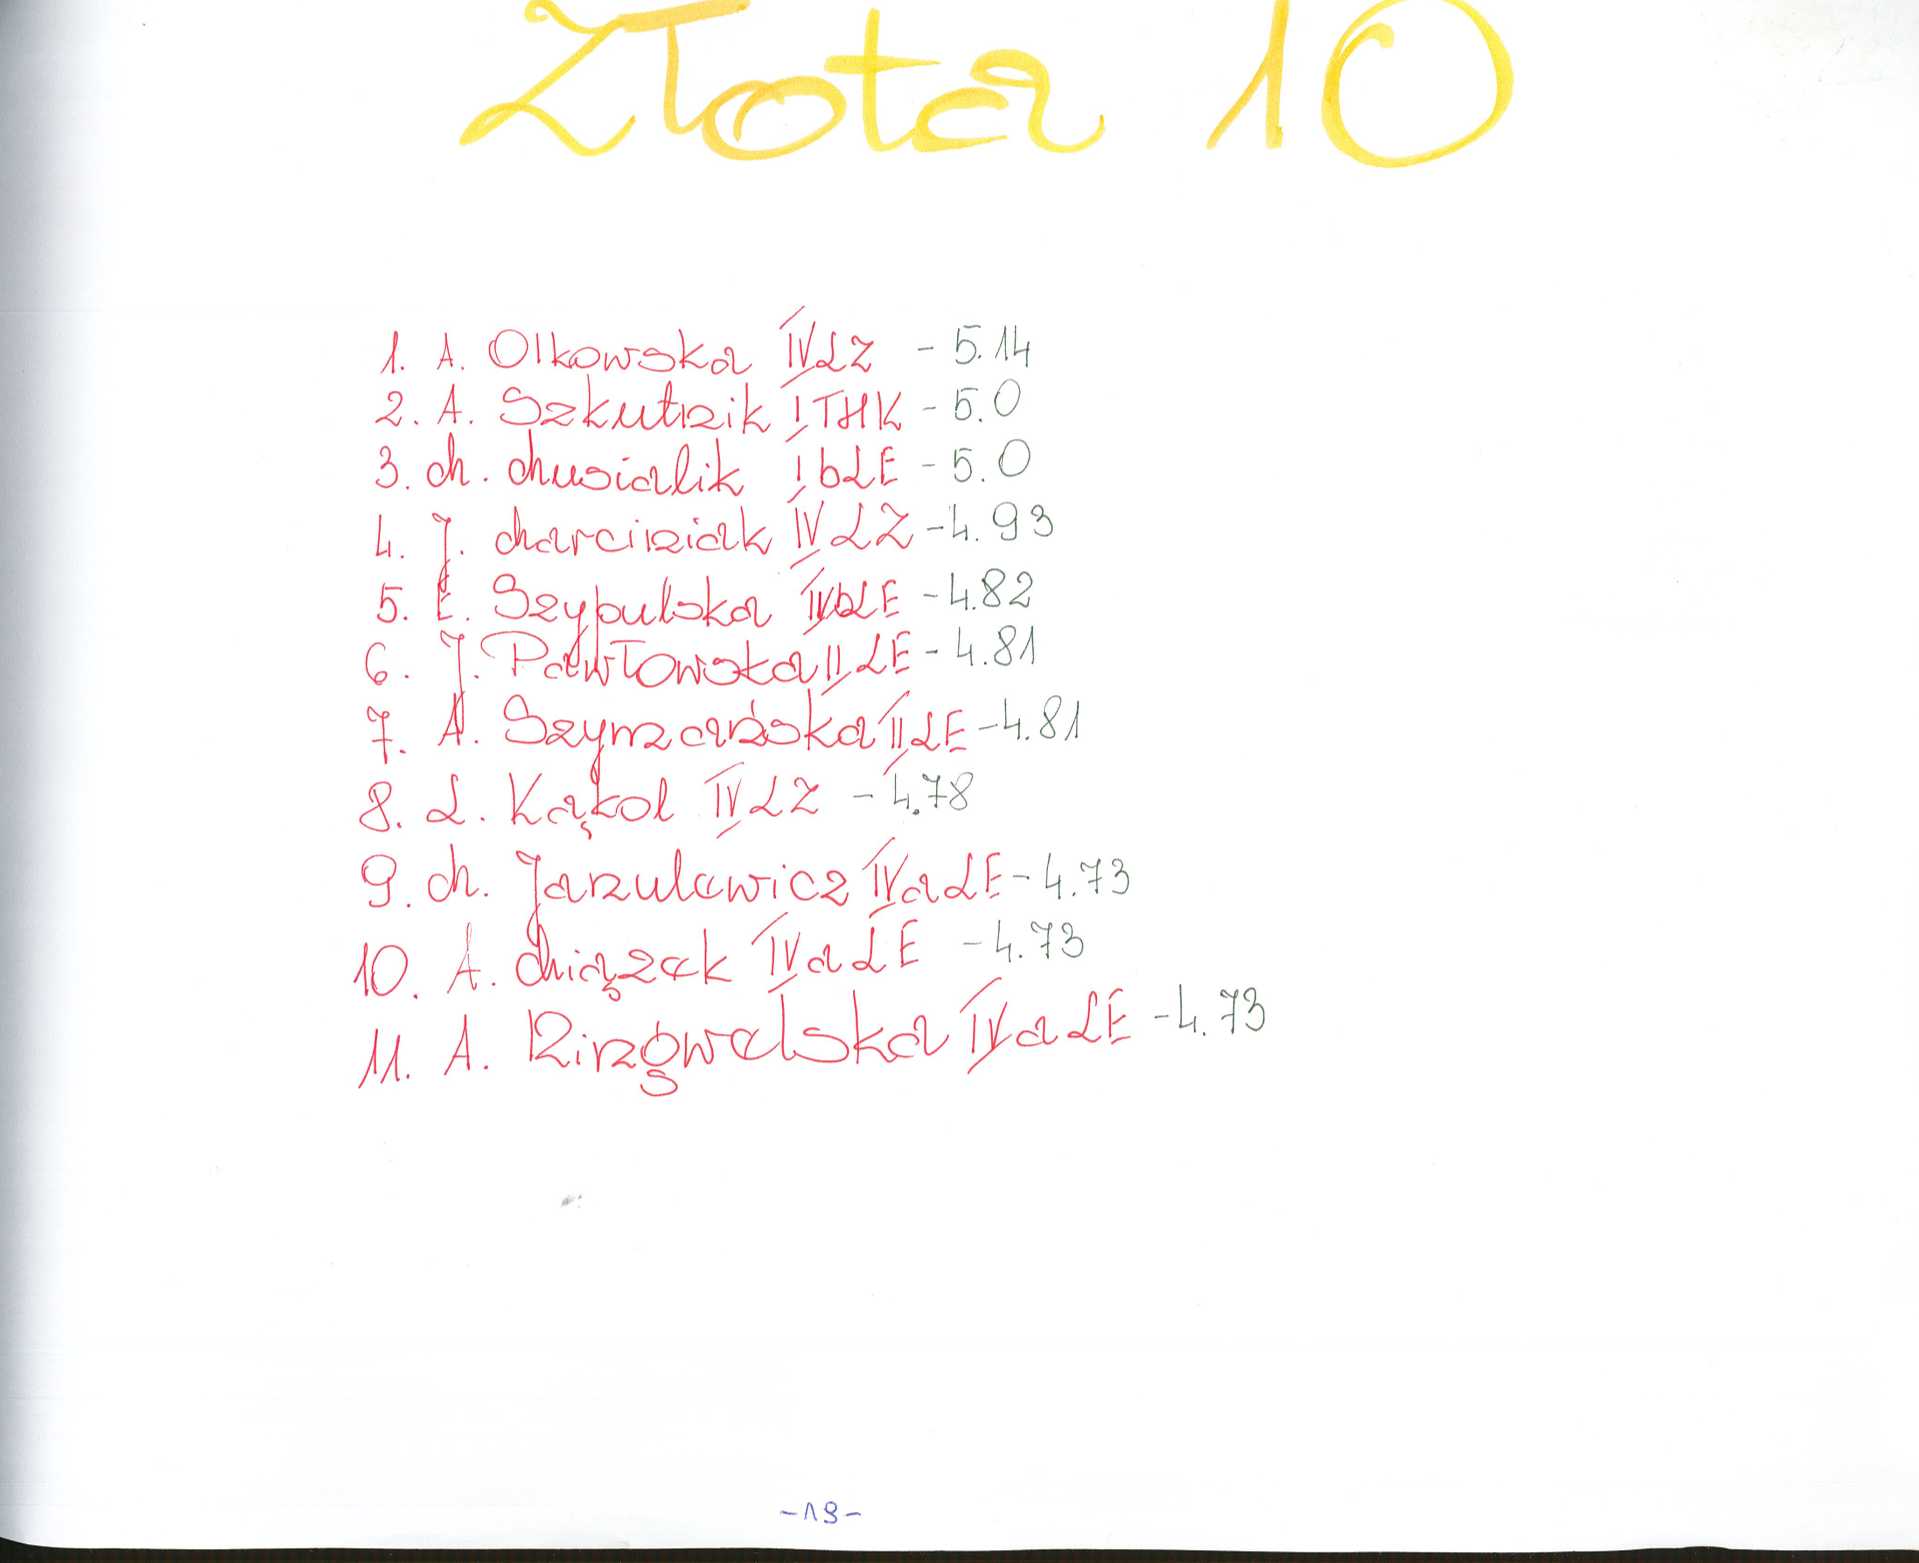 Złota 10
1. A. Olkowska IV LZ - 5.14
2. A. Szkutnik I THK - 5.0
3. M. Musialik I b LE - 5.0
4. J. Marciniak IV LZ - 4.93
5. E. Szypulska IV b LE - 4.82
6. J. Pawłowska II LE - 4.81
7. A. Szymańska II LE - 4.81
8. L. Kąkol IV LZ - 4.78
9. M. Janulewicz IV a LE - 4.73
10. A. Miązek IV a LE - 4.73
11. A. Ringwelska IV a LE - 4.73
-19-